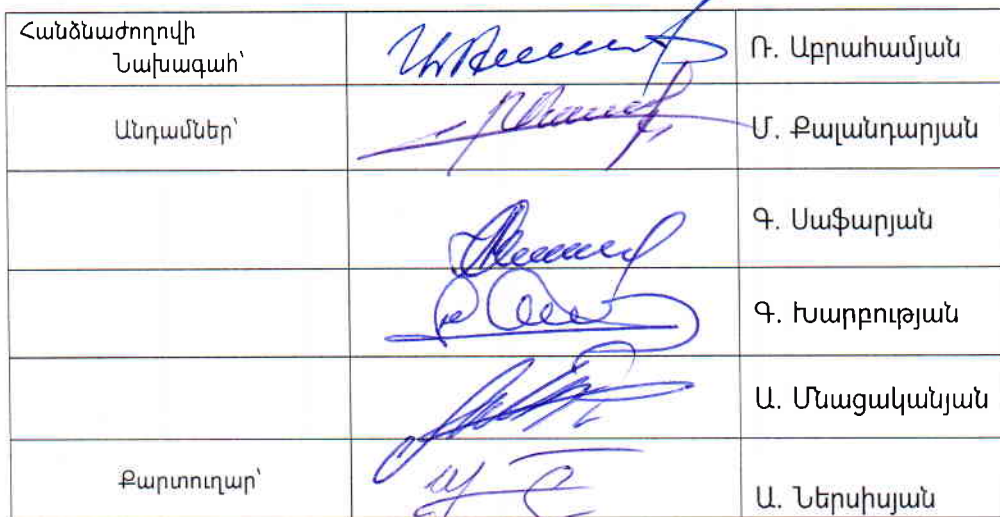 Հանձնաժողովի
Նախագահ՝
Ռ. Աբրահամյան
Անդամներ՝
Մ. Քալանդարյան
Գ. Սաֆարյան
Գ. Խարբության
Ա. Մնացականյան
Քարտուղար՝
Ա. Ներսիսյան